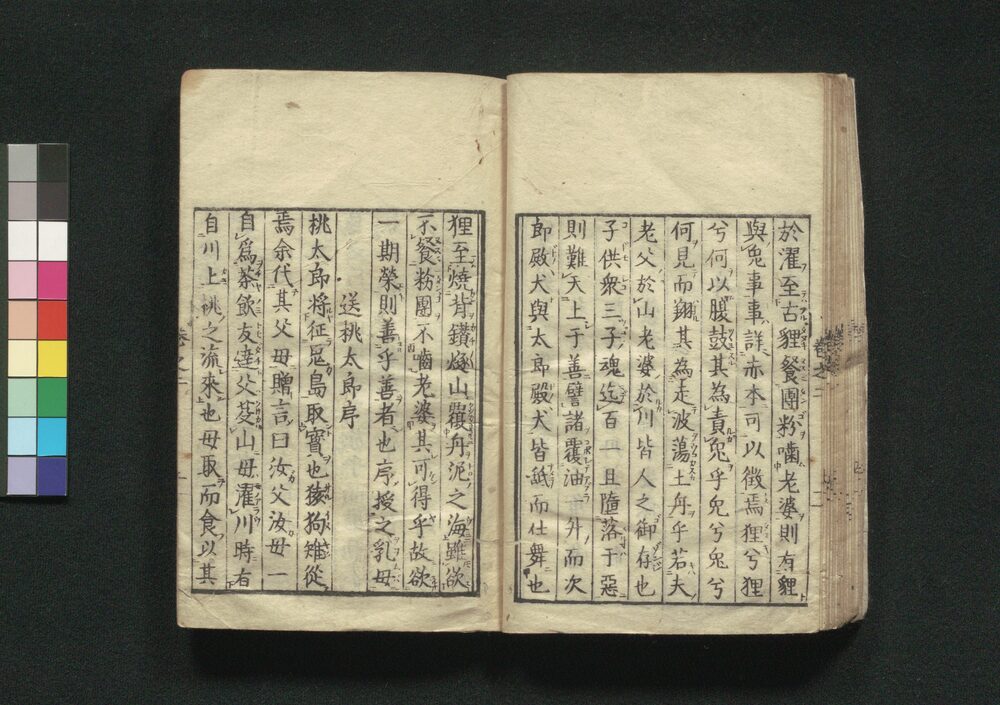 於濯至古狸餐團粉嚙老婆則有狸
與兎事事詳赤本可以徴焉狸兮狸
兮何以腹鼓其為責兎乎兎兮兎兮
何見而翔其為走波蕩土丹乎若夫
老父於山老婆於川皆人之御存也
子供衆三子魂迄百一且墮落于惡
則難天上于善譬諸覆油一升而次
郎殿犬與太郎殿犬皆舐而仕舞也
狸至燒背鑽燧山覆丹泥之海雖欲
不餐粉團不齒老婆其可得乎故欲
一期榮則善乎善者也序授之乳母
送桃太郎序
桃太郎将征鬼島取寳也猿狗雉從
焉余代其父母贈言曰汝父汝母一
自為茶飲友達父芟山母濯川時有
自川上桃之流來也母取而食以其